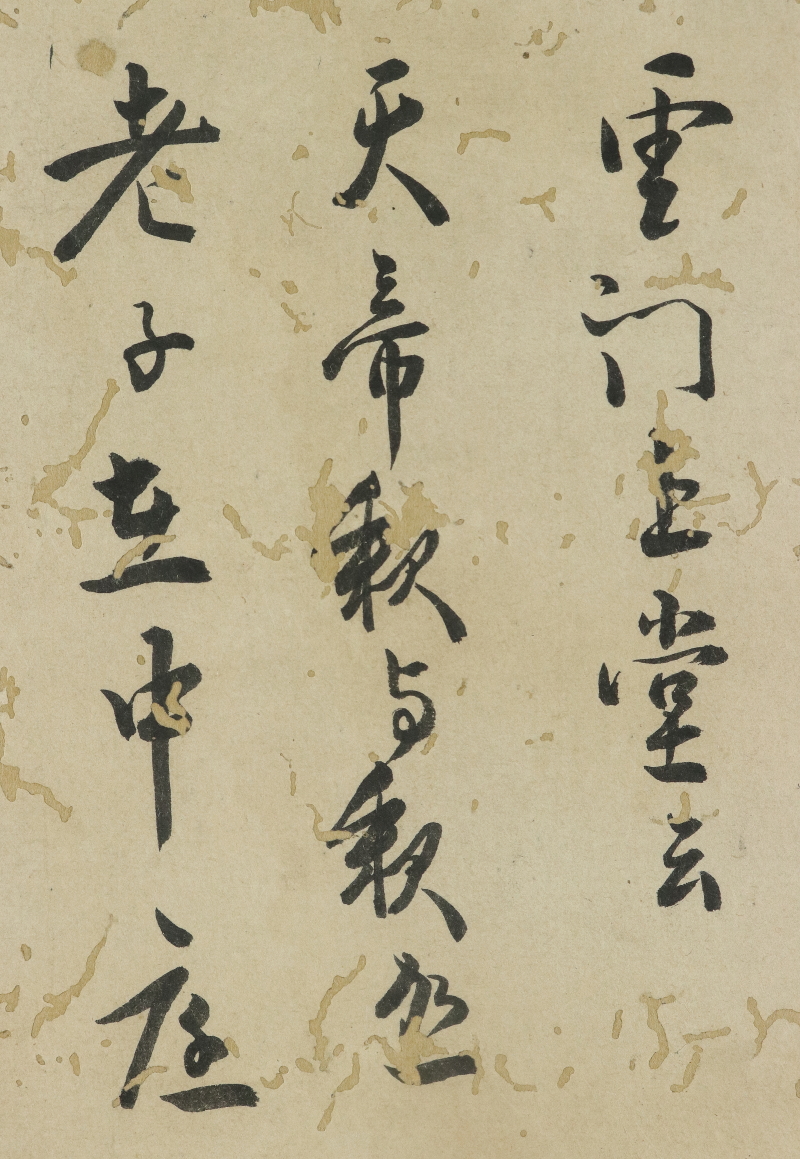 雲門上堂云
天帝釈与釈迦
老子在中庭